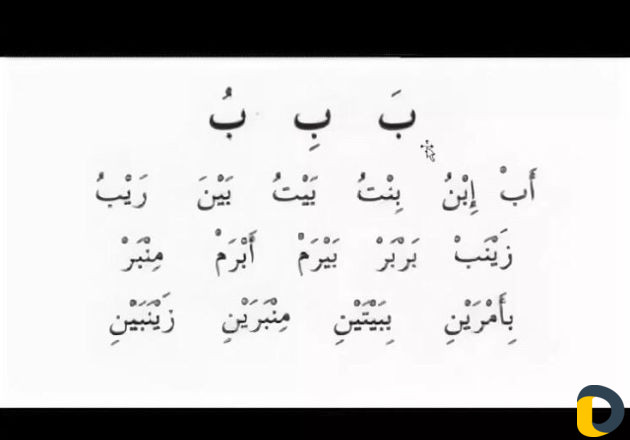 بَ بِ بُ
أَبْ إِبْنُ بِنْتُ بَيْتُ بَيْنَ رَيْبُ
زَيْنَبْ بَرْبَرْ بَيْرَمْ أَبْرَمْ مِنْبَرْ
بِأَمْرَيْنِ بِبَيْتَيْنِ مِنْبَرَيْنِ زَيْنَبَيْنِ